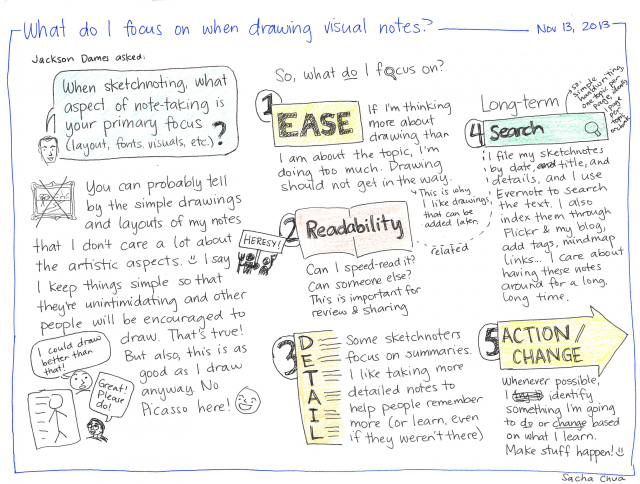 What do I focus on when drawing visual notes?
Nov 13, 2013
Jackson Dames asked:
When sketchnoting, what
aspect of note-taking is
your primary focus
(layout, fonts, visuals, etc.)?
You can probably tell
by the simple drawings
and layouts of my notes
that I don't care a lot about
the artistic aspects. I say
I keep things simple so that
they're unintimidating and other
people will be encouraged to
draw. That's true!
But also, this is as
good as I draw
anyway. No
Picasso here!
HERESY!
I could draw
better than
that!
Great!
Please
do!
So, what do I focus on?
1
EASE
If I'm thinking
more about
drawing than
I am about the topic, I'm
doing too much. Drawing
should not get in the way.
This is why
I like drawings
that can be
added later.
2
Readability
Can I speed-read it?
Can someone else?
This is important for
review & sharing
related
3
DETAIL
Some sketchnoters
focus on summaries.
I like taking more
detailed notes to
help people remember
more (or learn, even
if they weren't there)
Long-term
so,
simple
handwriting,
one topic per
page,
page
per
4
Search
I file my sketchnotes
by date, and title, and
details, and I use
Evernote to search
the text. I also
index them through
Flickr & my blog,
add tags, mindmap
links... I care about
having these notes
around for a long,
long time.
5
ACTION/
CHANGE
Whenever possible,
I identify
something I'm going
to do or change based
on what I learn.
Make stuff happen!
Sacha Chua